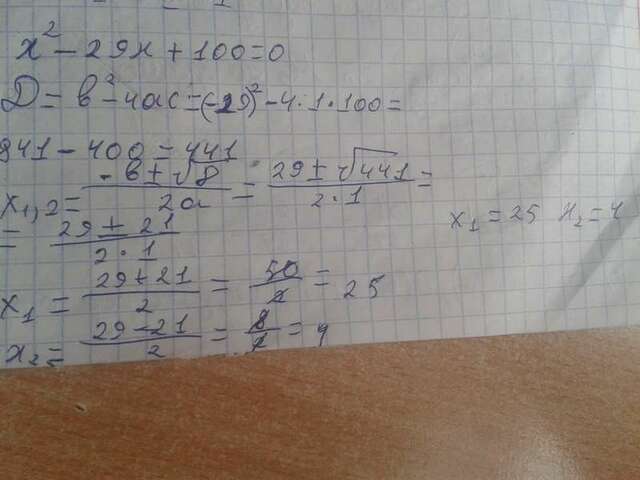 x² - 29x + 100 = 0
D = b² - 4ac = (-29)² - 4·1·100 =
841 - 400 = 441
x₁,₂ = (-b ± √D)/2a = (29 ± √441)/(2·1) =
= (29 ± 21)/(2·1)
x₁ = 25 x₂ = 4
x₁ = (29+21)/2 = 50/2 = 25
x₂ = (29-21)/2 = 8/2 = 4